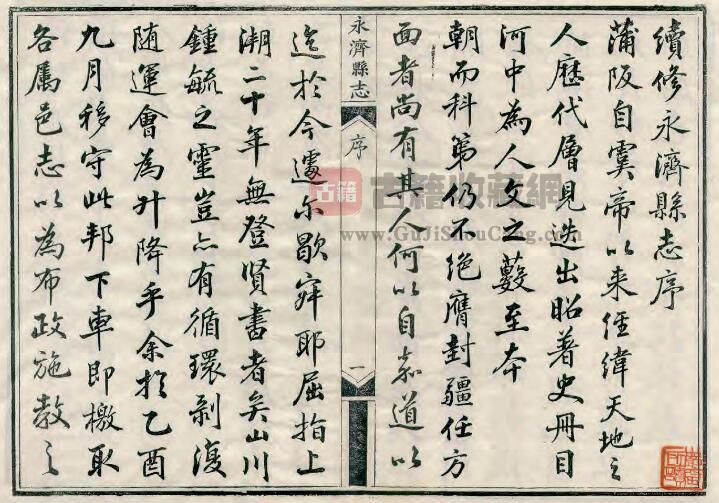 續修永濟縣志序
蒲阪自虞帝以来经緯天地之
人歷代層見迭出昭著史冊目
河中為人文之藪至本
朝而科第仍不絶膺封疆任方
面者尚有其人何以自嘉道以
永濟縣志
序
一
迄於今遽尔歇寂耶屈指上
溯二十年無登賢書者矣山川
鍾毓之靈豈亦有循環剝復
随運會為升降乎余於乙酉
九月移守此邦下車即檄取
各属邑志以為布政施教之
古籍
古籍收藏網
www.GuJiShouCang.com